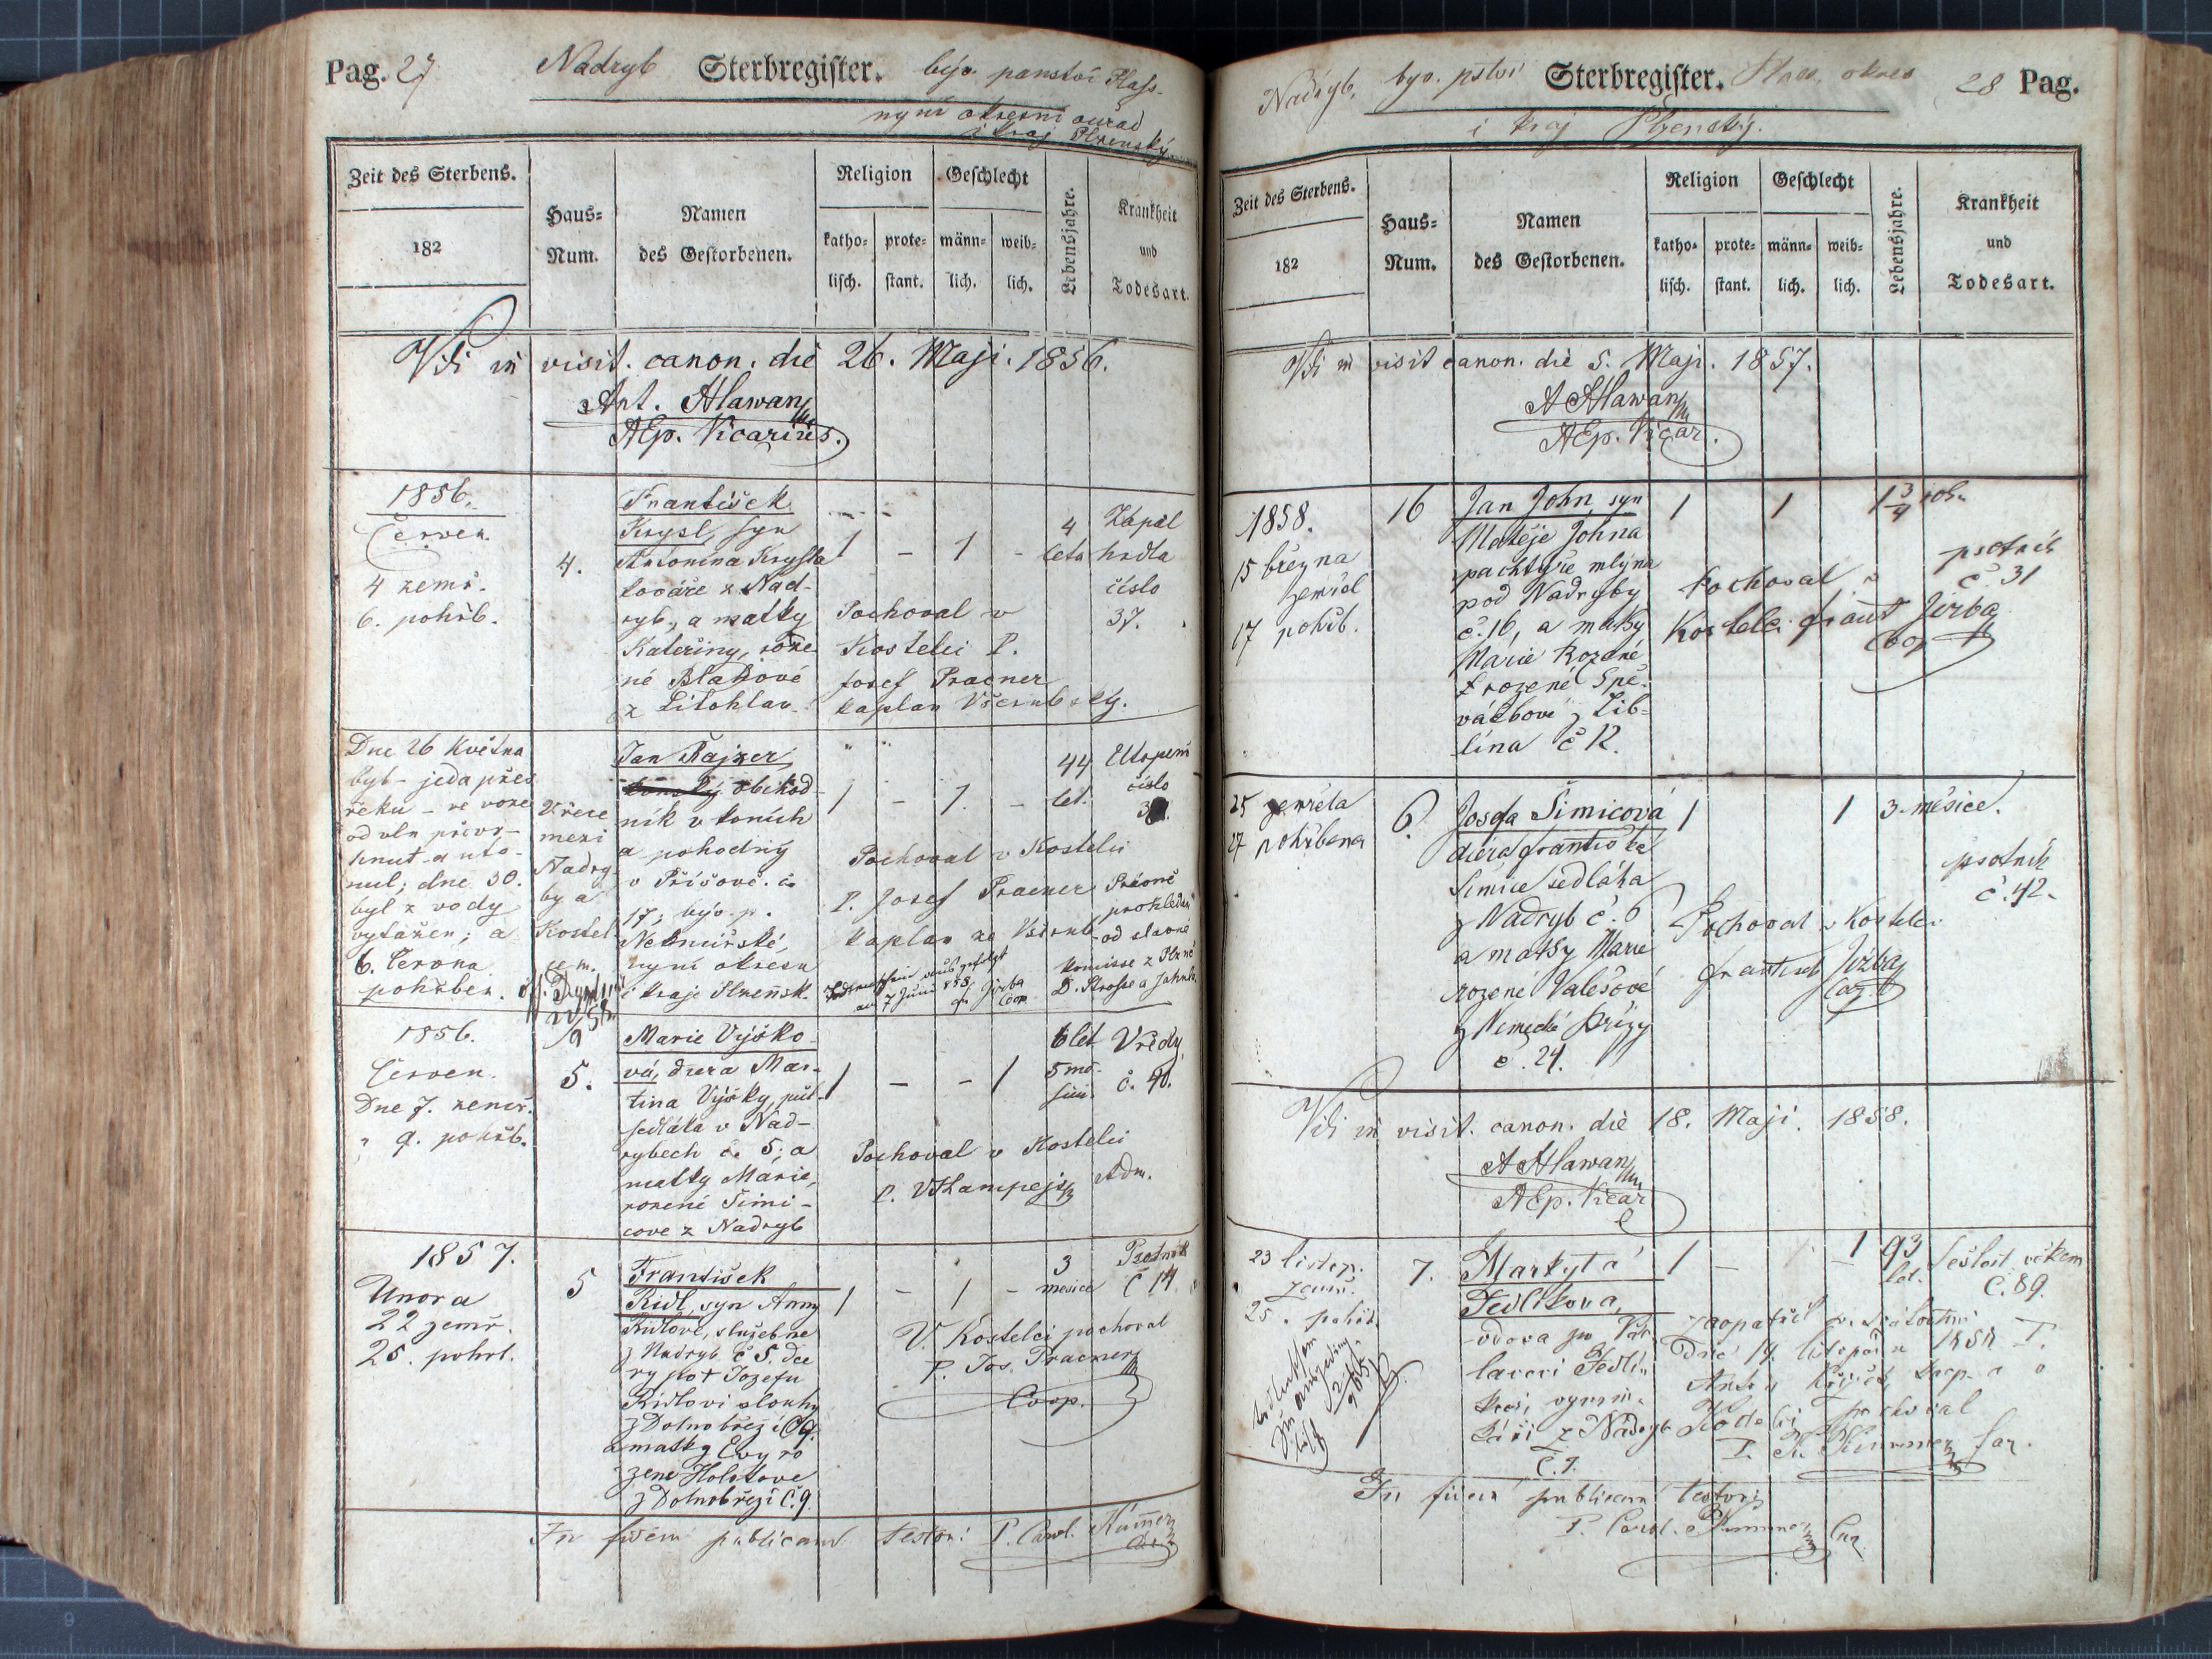 Pag. 27 Nadryb Sterbregister. býv. panství Plass-
nyní okresní ouřad
i kraj Plzenský
Zeit des Sterbens.
182
Haus-
Num.
Namen
des Gestorbenen.
Religion
katho-
lisch.
prote-
stant.
Geschlecht
männ-
lich.
weib-
lich.
Lebensjahre.
Krankheit
und
Todesart.
Vidi in visit. canon. die 26. Maji. 1856.
Ant. Hlawan
AEp. Vicarius.
1856.
Červen.
4 zemř.
6. pohřb.
4.
František
Krysl, syn
Antonina Krysla
kováře z Nad-
ryb, a matky
Kateřiny, roze-
né Blahové
z Litohlav
1 - 1 -
4
leta
Zápal
hrdla
číslo
37.
Pochoval v
Kostelci P.
Josef Pracner
kaplan Všerubský.
Dne 26 Května
byl - jeda přes
řeku - ve voze
od vln převr-
hnut a uto-
nul; dne 30.
byl z vody
vytažen; a
6. Června
pohřben.
V řece
mezi
Nadry-
by a
Kostel-
cem.
Jan Rajzer
obchod-
ník v koních
a pohodný
v Příšově. č.
17; býv. p.
Nekmířské,
nyní okresu
i kraje Plzeňsk.
1 - 1. -
44
let.
Utopení
číslo
Pochoval v Kostelci
P. Josef Pracner
kaplan ze Všerub
Právně
prohledán
od slavné
komisse z Plzně
am 7 Juni 858 Jirba
Coop
1856.
Červen.
Dne 7. zemř.
" 9. pohřb.
5.
Marie Výsko-
vá, dcera Mar-
tina Výsky, půl-
sedláka v Nad-
rybech č. 5; a
matky Marie,
rozené Šimi-
cove z Nadryb
1 - - 1
6 let
5 mě-
síců
Vředy
č. 40.
Pochoval v Kostelci
Adm.
1857.
Unora
22 zemř.
25. pohrb.
5
František
Ridl, syn Anny
Ridlové, služebne
z Nadryb č 5. dce
ry po † Jozefu
Ridlovi slouhy
z Dolnobřezi č 9.
a matky Evy ro
zene Holotove
z Dolnobřezi č. 9.
1 - 1 -
3
mesice
Psotnik
č 14.
V. Kostelci pochoval
P. Jos. Pracner
Coop.
In fidem publicam testor: P. Carl. Kummer
Nadryb, byv. pstvi Sterbregister. Plass, okres 28 Pag.
i kraj Plzenský.
Zeit des Sterbens.
182
Haus-
Num.
Namen
des Gestorbenen.
Religion
katho-
lisch.
prote-
stant.
Geschlecht
männ-
lich.
weib-
lich.
Lebensjahre.
Krankheit
und
Todesart.
Vidi in visit canon. die 5. Maji. 1857.
A Hlawan
AEp. Vicar.
1858.
15 března
zemřel
17 pohřb.
16
Jan John, syn
Matěje Johna
pachtýře mlýna
pod Nadryby
č. 16, a matky
Marie
rozené Spě-
váčkové z Lib-
lína č 12.
1 1
1 3/4 roku
psotník
č. 31
Pochoval v
Kostelci Frant Jirba
Coop
25 zemřela
27 pohřbena
6.
Josefa Šimicová
dcera Františka
Šimice sedláka
z Nadryb č. 6
a matky Marie
rozené Valešové
z Nemecké Břízy
č. 24.
1 1
3 měsice.
psotník
č. 42.
Pochoval v Kostelci
František Jirba
Coop.
Vidi in visit. canon. die 18. Maji. 1858.
A Hlawan
AEp. Vicar
23 listop.
zemř.
25. pohřb.
7.
Markyta
Jedlikova,
vdova po Vác-
lavovi Jedli-
kovi, vymin-
káři z Nadryb
č. 7.
1 - - 1
93
let.
Sešlost věkem
č. 89.
zaopatřil sv. svátostmi
Dne 19. listopadu 1858 P.
Kostelci pochoval
P. K. Kummer far.
In fidem publicam testor:
P. Carol. Kummer Cur.